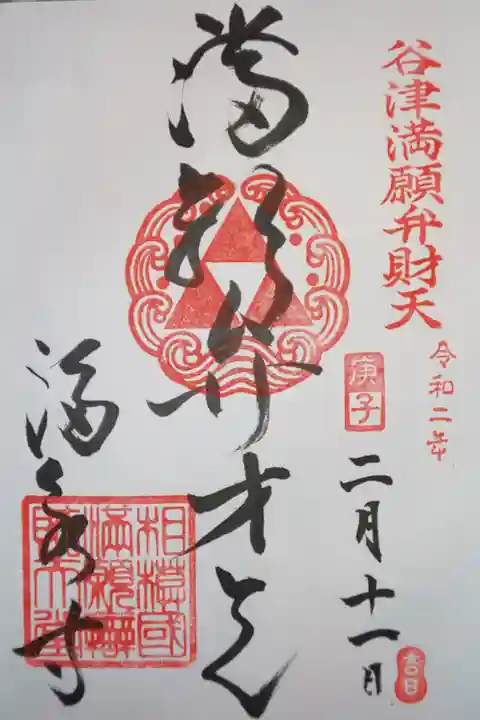 谷津満願弁財天
令和二年
庚子
二月十一日
吉日
満願弁才天
相模國
満願辨
財天堂
満泉寺